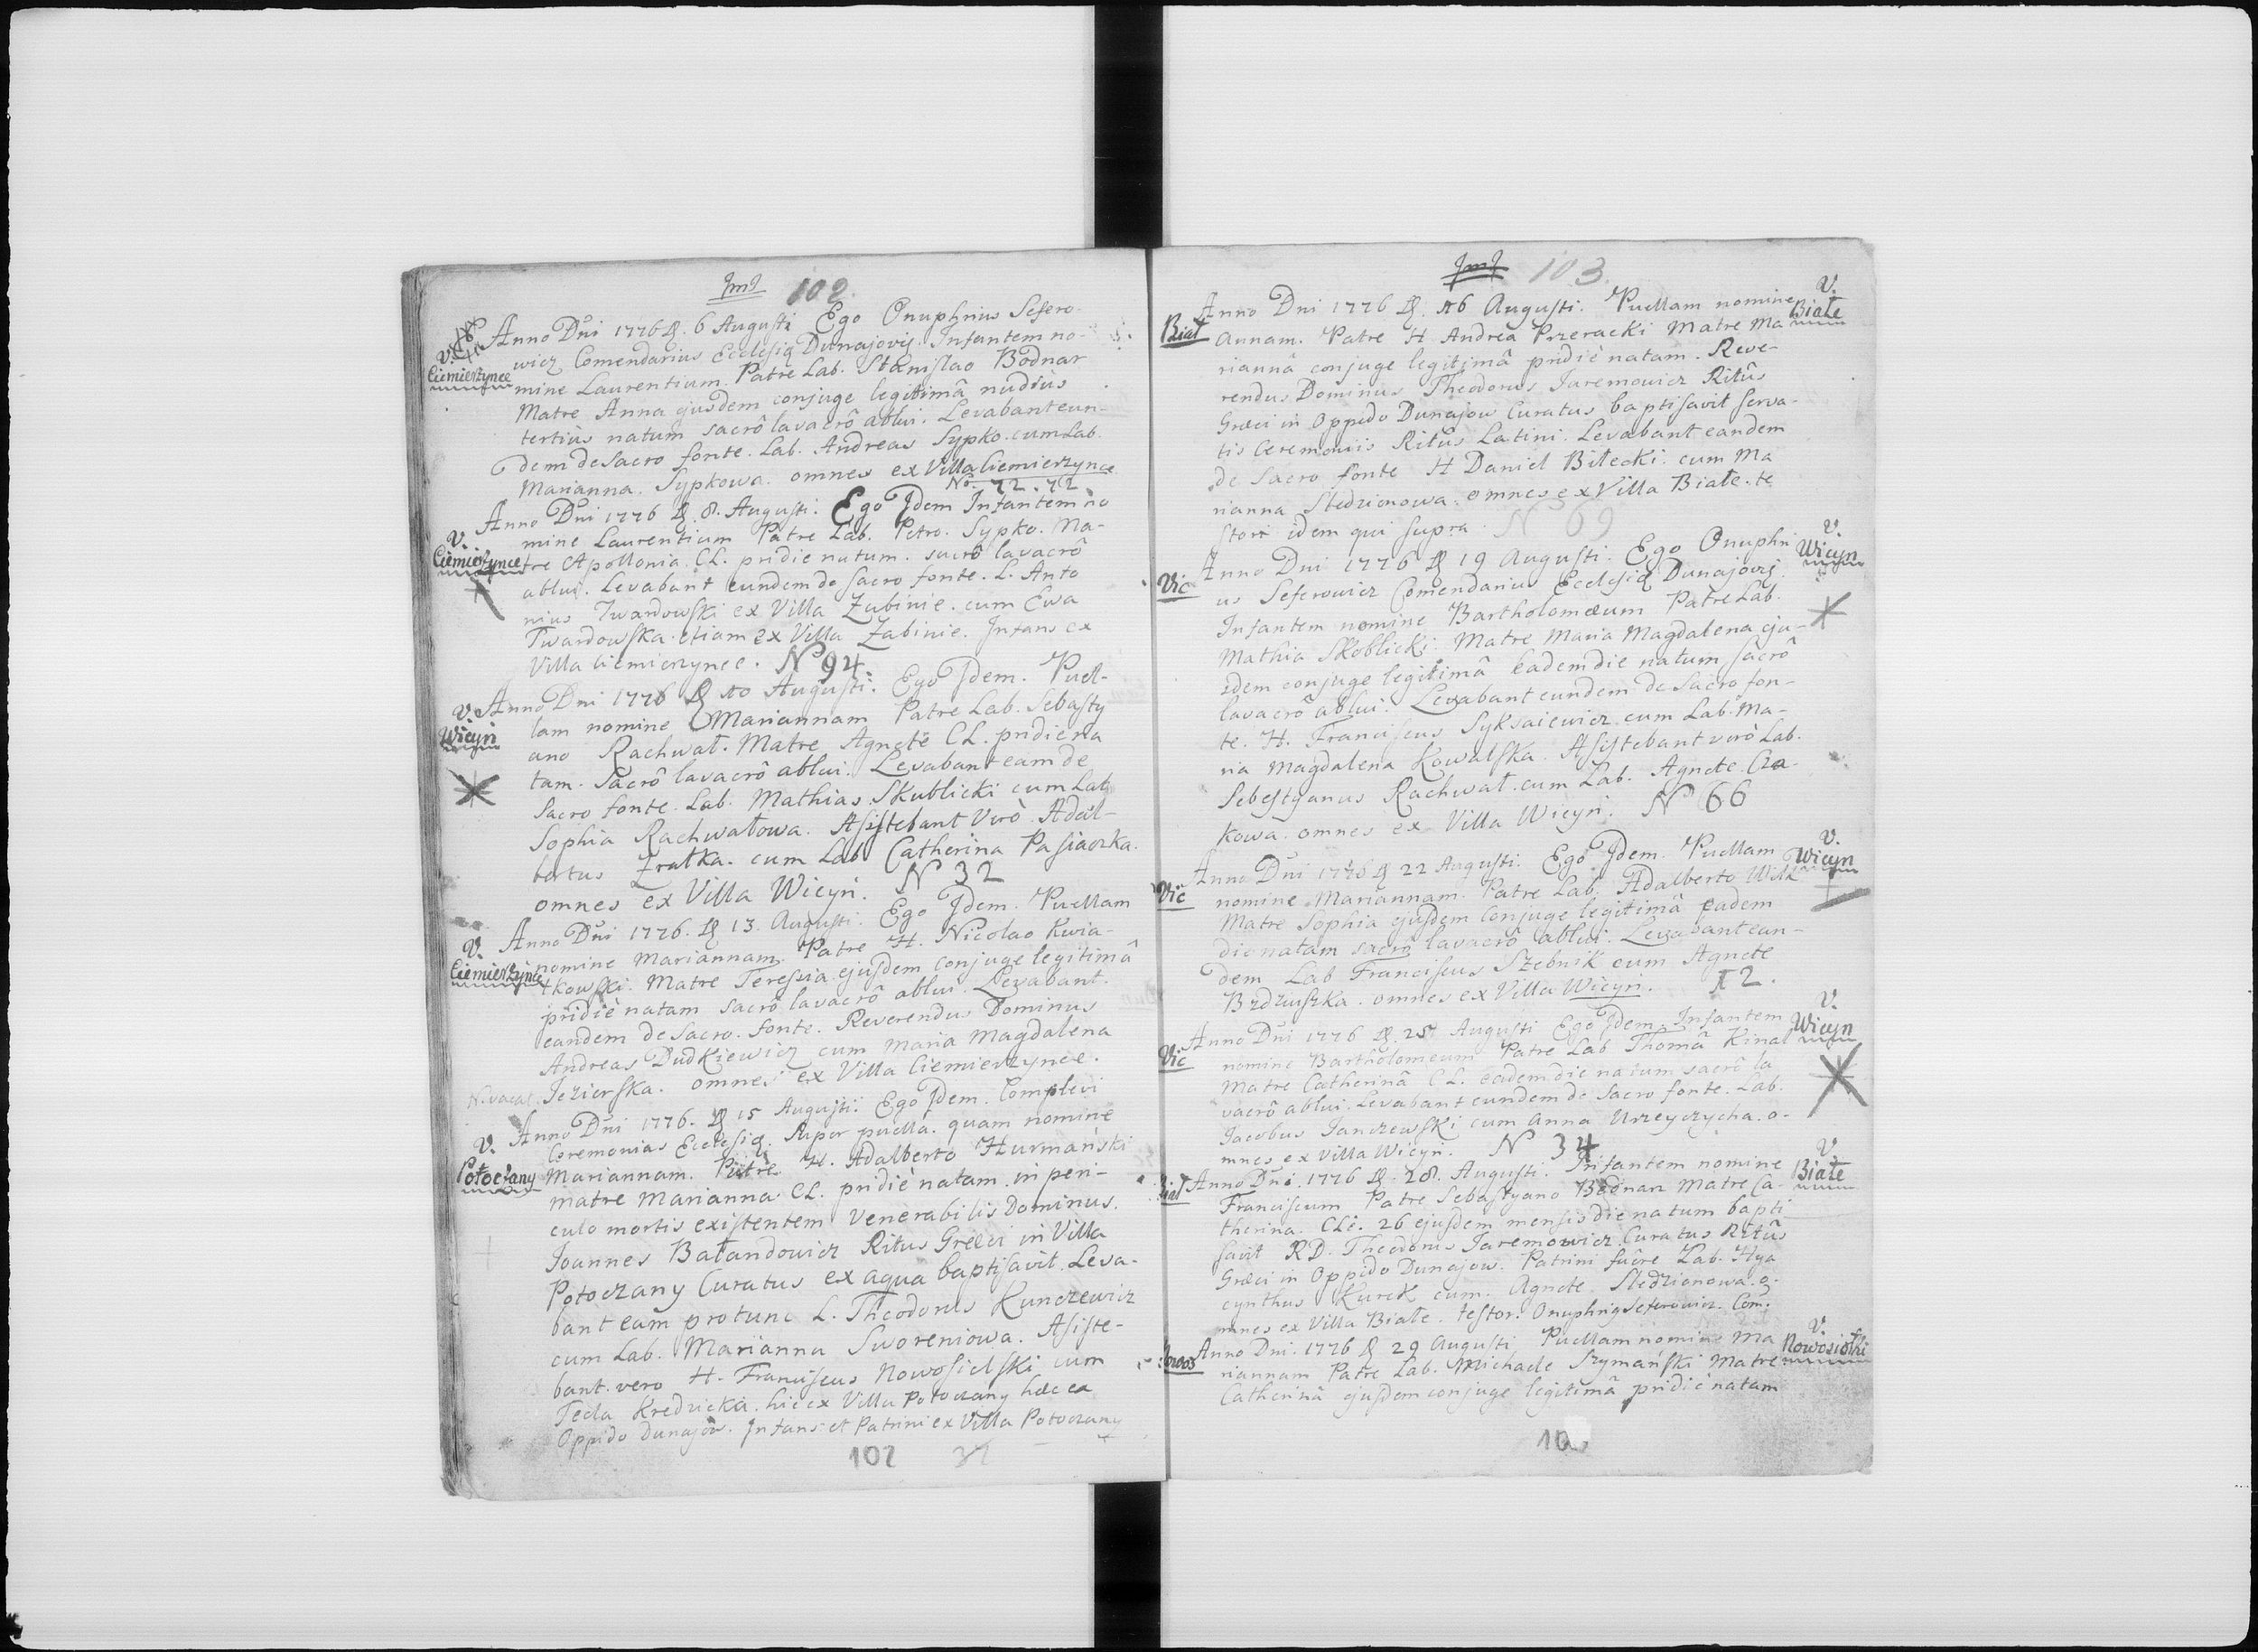 JmJ 102.
Anno Dni 1776 D. 6 Augusti Ego Onuphrius Sefero-
V. Ciemierzynce
wicz Comendarius Ecclesię Dunajovij. Infantem no-
mine Laurentium. Patre Lab. Stanislao Bodnar
Matre Anna ejusdem conjuge legitimâ nudiùs
tertiùs natum sacrô lavacrô ablui. Levabant eun-
dem de Sacro fonte. Lab. Andreas Sypko. cum Lab.
Marianna. Sypkowa. omnes ex Villa Ciemierzynce
No. 72. 72
Anno Dni 1776 D. 8. Augusti. Ego Idem Infantem no
V.
mine Laurentium Patre Lab. Petro. Sypko. Ma-
Ciemierzynce tre Apollonia. CL. pridie natum. sacrô lavacrô
ablui. Levabant eundem de sacro fonte. L. Anto
nius Twardowski ex Villa Zabinie. cum Ewa
Twardowska. etiam ex Villa Zabinie. Infans ex
Villa Ciemierzynce. N 94.
V. Anno Dni 1776 D 10 Augusti. Ego Idem. Puel-
Wicyń
lam nomine Mariannam Patre Lab. Sebasty
ano Rachwał. Matre Agnete CL. pridie na
tam. Sacrô lavacrô ablui. Levabant eam de
Sacro fonte. Lab. Mathias Skublicki cum Lab
Sophia Rachwałowa. Asistebant Verò Adal-
bertus Zrałka. cum Lab Catherina Pasiaczka.
omnes ex Villa Wicyń. N 32
Anno Dni 1776. D 13. Augusti. Ego Idem. Puellam
V.
nomine Mariannam. Patre H. Nicolao Kwia-
Ciemierzynce tkowski. Matre Teressia ejusdem conjuge legitimâ
pridiè natam sacrô lavacrô ablui. Levabant.
eandem de Sacro. fonte. Reverendus Dominus
Andreas Dudkiewicz cum Maria Magdalena
N. vacat. Jezierska. omnes ex Villa Ciemierzynce.
Anno Dni 1776. D 15 Augusti. Ego Idem. Complevi
V.
Ceremonias Ecclesię. super puella. quam nomine
Potoczany Mariannam. Patre H. Adalberto Hurmański
matre Marianna CL. pridiè natam in peri-
culo mortis existentem Venerabilis Dominus.
Joannes Bałandowicz Ritus Græci in Villa
Potoczany Curatus ex aqua baptisavit. Leva-
bant eam protunc L. Theodorus Kunczewicz
cum Lab. Marianna Sworeniowa. Asiste-
bant. vero H. Franciscus Nowosielski cum
Tecla Kredzicka. hic ex Villa Potoczany hæc ex
Oppido Dunajów. Infans et Patrini ex Villa Potoczany
102
JmJ 103
Anno Dni 1776 D. 16 Augusti. Puellam nomine
V. Białe
Biał Annam. Patre H Andrea Przeracki Matre Ma
riannâ conjuge legitimâ pridiè natam. Reve-
rendus Dominus Theodorus Jaremowicz Ritûs
Græci in Oppido Dunajow Curatus baptisavit serva-
tis Ceremoniis Ritûs Latini. Levabant eandem
de Sacro fonte H Daniel Biłecki. cum Ma
rianna Sledzionowa. omnes ex Villa Białe. te
stor idem qui supra N 69
Anno Dni 1776 D 19 Augusti. Ego Onuphri
V. Wicyn
Vic us Seferowicz Comendarius Ecclesię Dunajovij
Infantem nomine Bartholomæum Patre Lab.
Mathia Skoblicki. Matre Maria Magdalena eju-
sdem conjuge legitimâ eadem die natum sacrô
lavacrô ablui. Levabant eundem de Sacro fon-
te. H. Franciscus Syksaiewicz. cum Lab. Ma-
ria Magdalena Kowalska. Asistebant verò Lab.
Sebestyanus Rachwał. cum Lab. Agnete. Cza-
kowa. omnes ex Villa Wicyń. N 66
Anno Dni 1776 D 22 Augusti. Ego Idem. Puellam
V. Wicyn
Vic nomine Mariannam. Patre Lab. Adalberto Wilk
Matre Sophia ejusdem Conjuge legitimâ eadem
die natam sacrô lavacrô ablui. Levabant ean-
dem Lab Franciscus Szebnik cum Agnete
omnes ex Villa Wicyń. 12.
Anno Dni 1776 D. 25 Augusti Ego Idem Infantem
V. Wicyn
Vic nomine Bartholomeum Patre Lab Thomâ Kinal
Matre Catherinâ CL. eadem die natum sacrô la
vacrô ablui. Levabant eundem de Sacro fonte. Lab.
Jacobus Janczewski cum Anna Urzeyczycha. o-
mnes ex Villa Wicyń. N 34
Anno Dni. 1776 D. 28. Augusti. Infantem nomine
V. Białe
Biał Franciscum Patre Sebastyano Bednarz Matre Ca-
therina. CLè. 26 ejusdem mensis die natum bapti
savit RD. Theodorus Jaremowicz Curatus Ritûs
Græci in Oppido Dunajow. Patrini fuêre Lab. Hya
cynthus Kurek cum. Agnete Sledzionowa. o-
mnes ex Villa Białe. testor. Onuphrius Seferowicz. Com.
Anno Dni. 1776 D 29 Augusti Puellam nomine Ma
V. Nowosiołki
riannam Patre Lab. Michaele Szymański Matre
Catherinâ ejusdem conjuge legitimâ pridiè natam